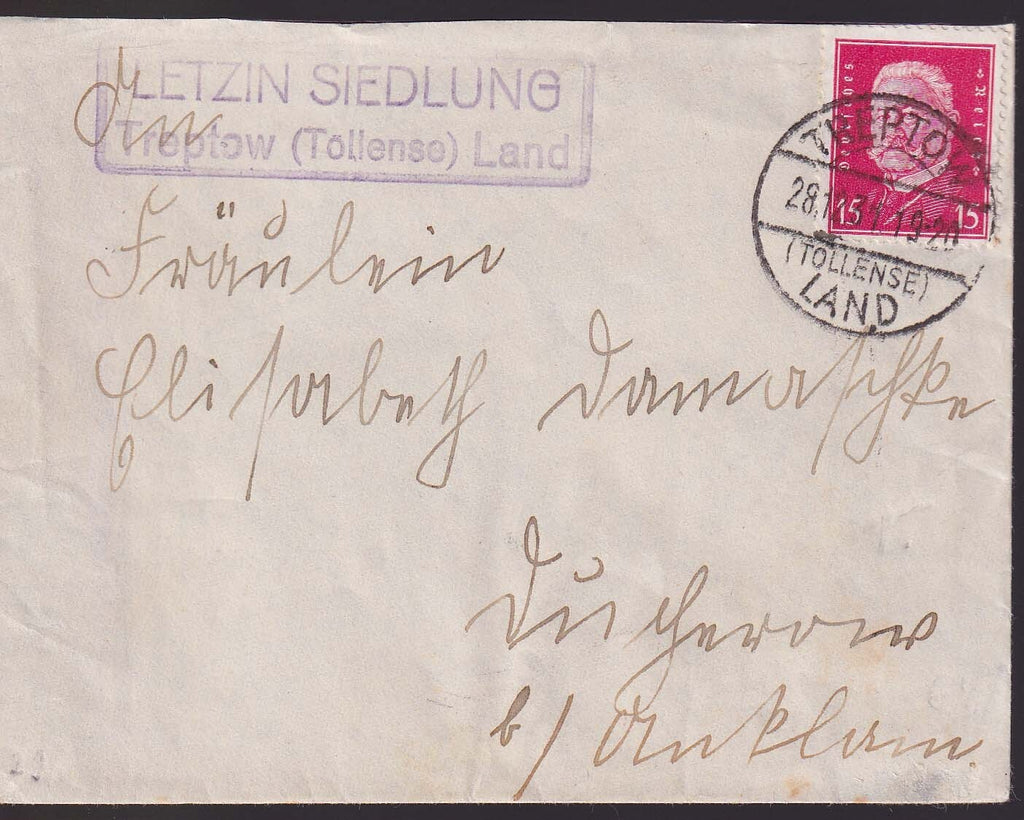 LETZIN SIEDLUNG
Treptow (Töllense) Land
An
Fräulein
Elisabeth Damaschke
Ducherow
b/ Anklam.
Deutsches Reich
15 15
TREPTOW
28.12.31.19-20
(TOLLENSE)
LAND